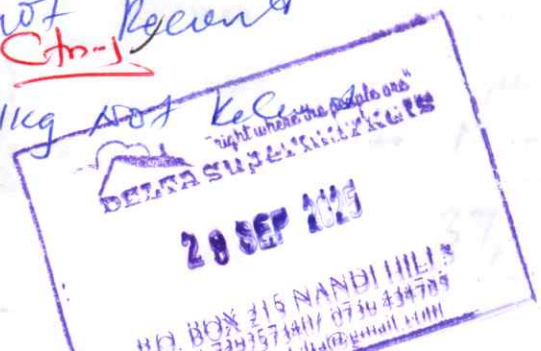 not Received
Ctn-1
1kg Not Received
"right where the people are"
DELTA SUPERMARKETS
28 SEP 2025
P.O. BOX 316 NANDI HILLS
0736 434709
@gmail.com